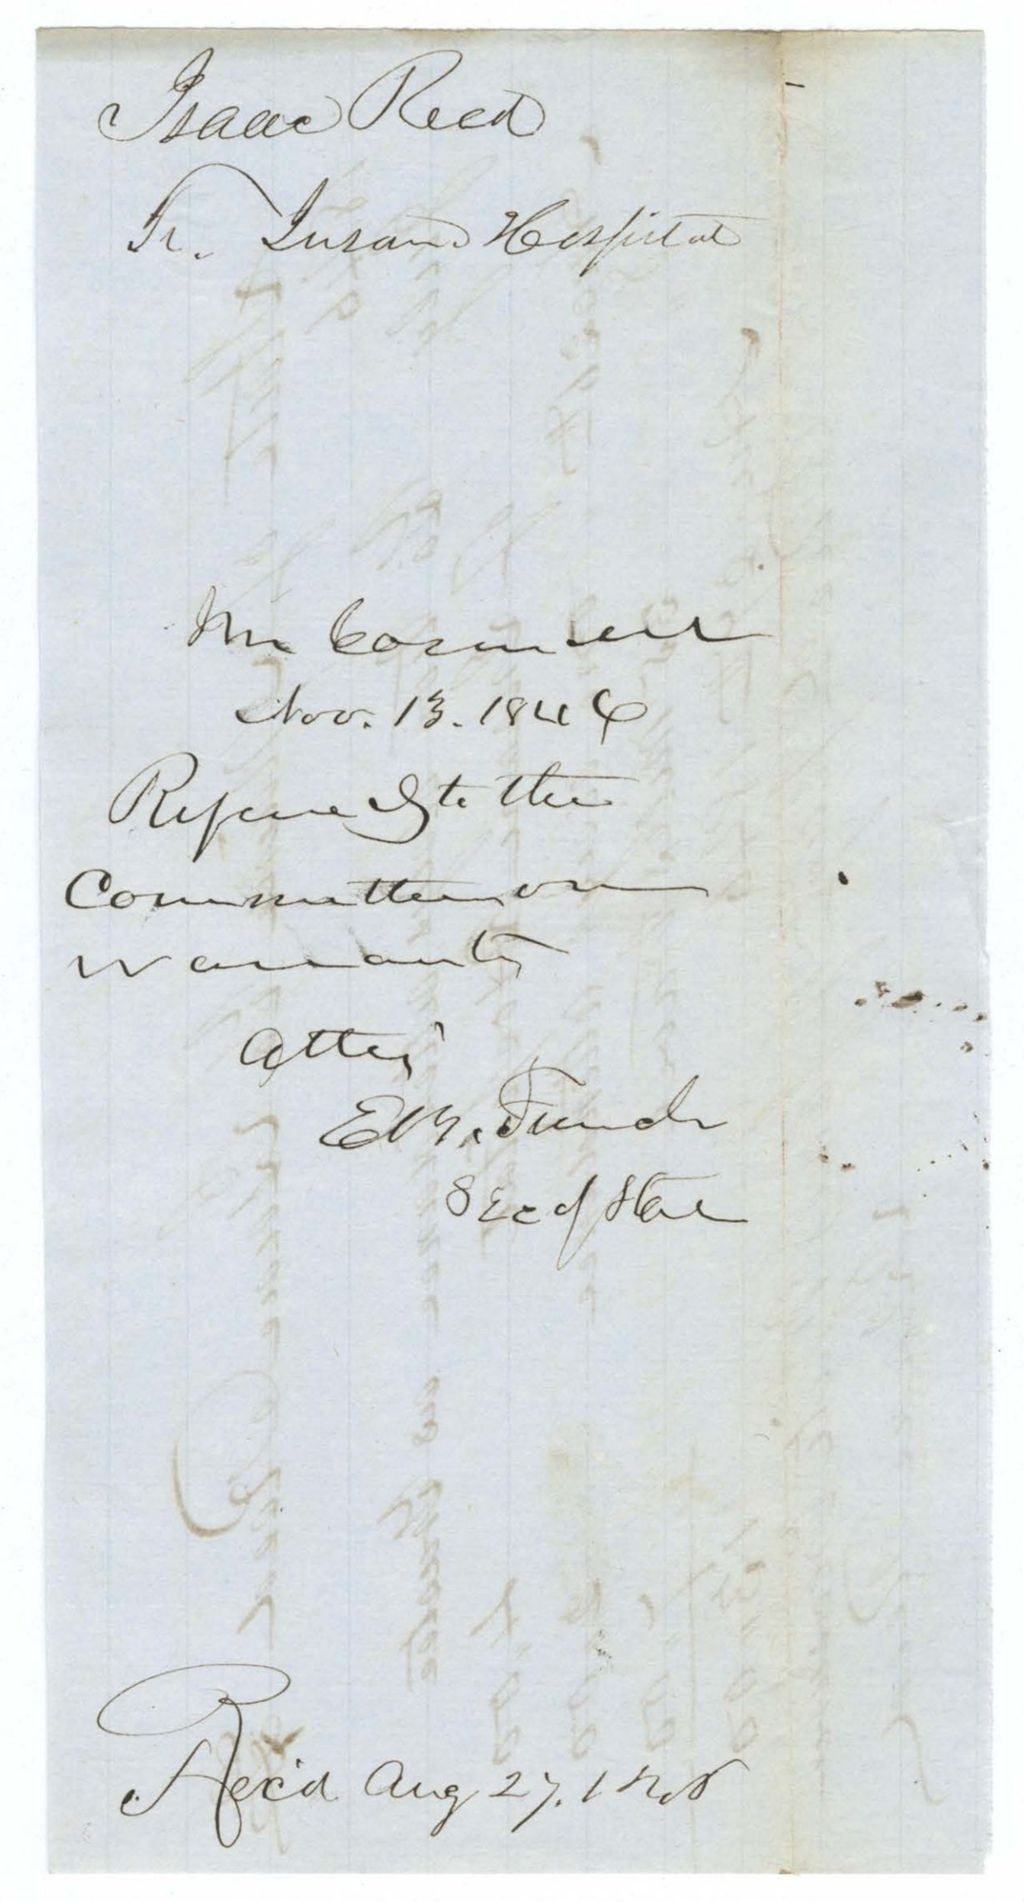 Isaac Reed
Tr. Insane Hospital
In Council
Nov. 13. 1846
Referred to the
Committee on
Warrants
Attest
E. B. French
Sec of State
Rec'd Aug 27. 18